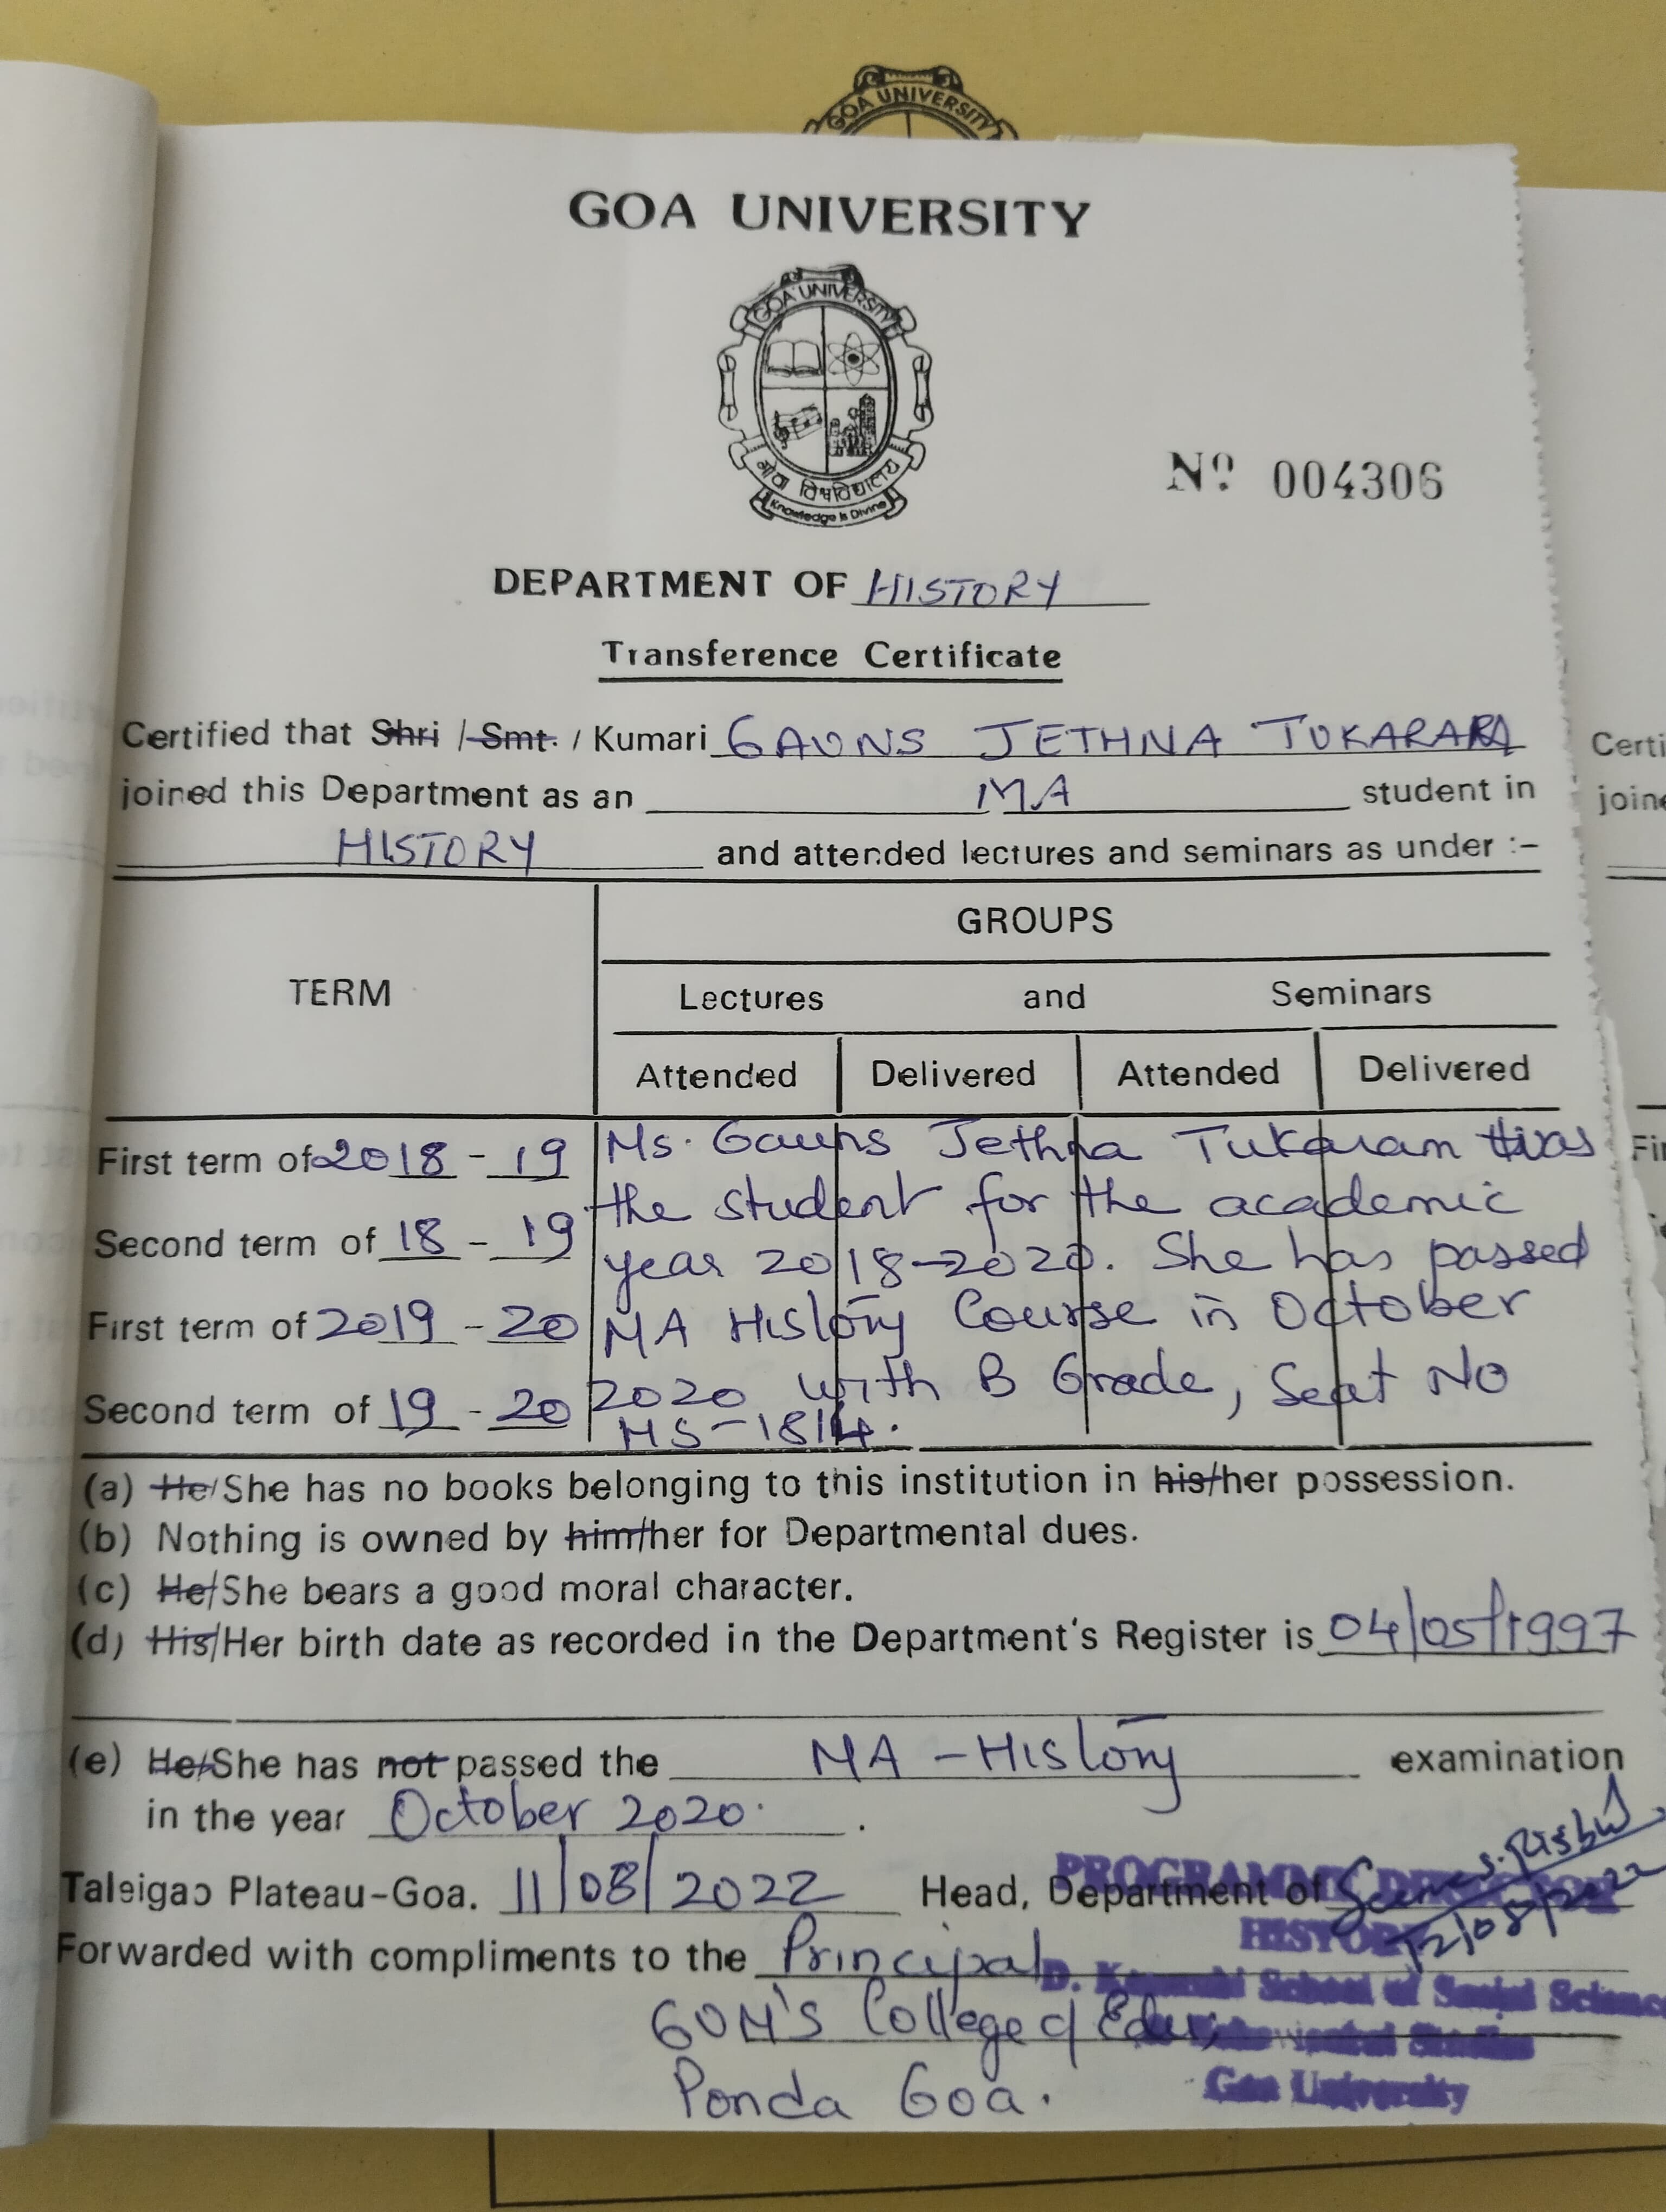 GOA UNIVERSITY
GOA UNIVERSITY
GOA UNIVERSITY
गोवा विश्वविद्यालय
Knowledge is Divine
Nº 004306
DEPARTMENT OF HISTORY
Transference Certificate
Certified that Shri / Smt. / Kumari GAUNS JETHNA TUKARAM
joined this Department as an MA student in
HISTORY and attended lectures and seminars as under :-
GROUPS
TERM
Lectures and Seminars
Attended Delivered Attended Delivered
First term of 2018 - 19 Ms. Gauns Jethna Tukaram was
Second term of 18 - 19 the student for the academic
year 2018-2020. She has passed
First term of 2019 - 20 MA History Course in October
Second term of 19 - 20 2020 with B Grade, Seat No
HS-1814.
(a) He/She has no books belonging to this institution in his/her possession.
(b) Nothing is owned by him/her for Departmental dues.
(c) He/She bears a good moral character.
(d) His/Her birth date as recorded in the Department's Register is 04/05/1997
(e) He/She has not passed the MA - History examination
in the year October 2020.
Taleigao Plateau-Goa. 11/08/2022 Head, Department of
12/08/2022
PROGRAMME DIRECTOR
HISTORY
Forwarded with compliments to the Principal
D. School of Social Science
GVM's College of Edu,
Goa University
Ponda Goa.
Certi
joine
Fir